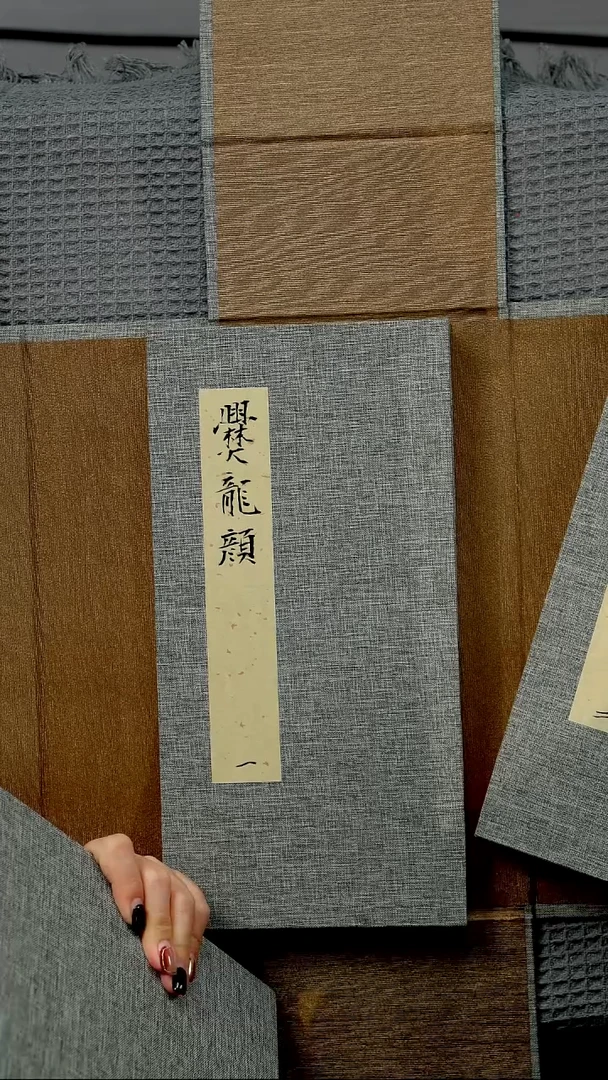 爨龍顔
一
二